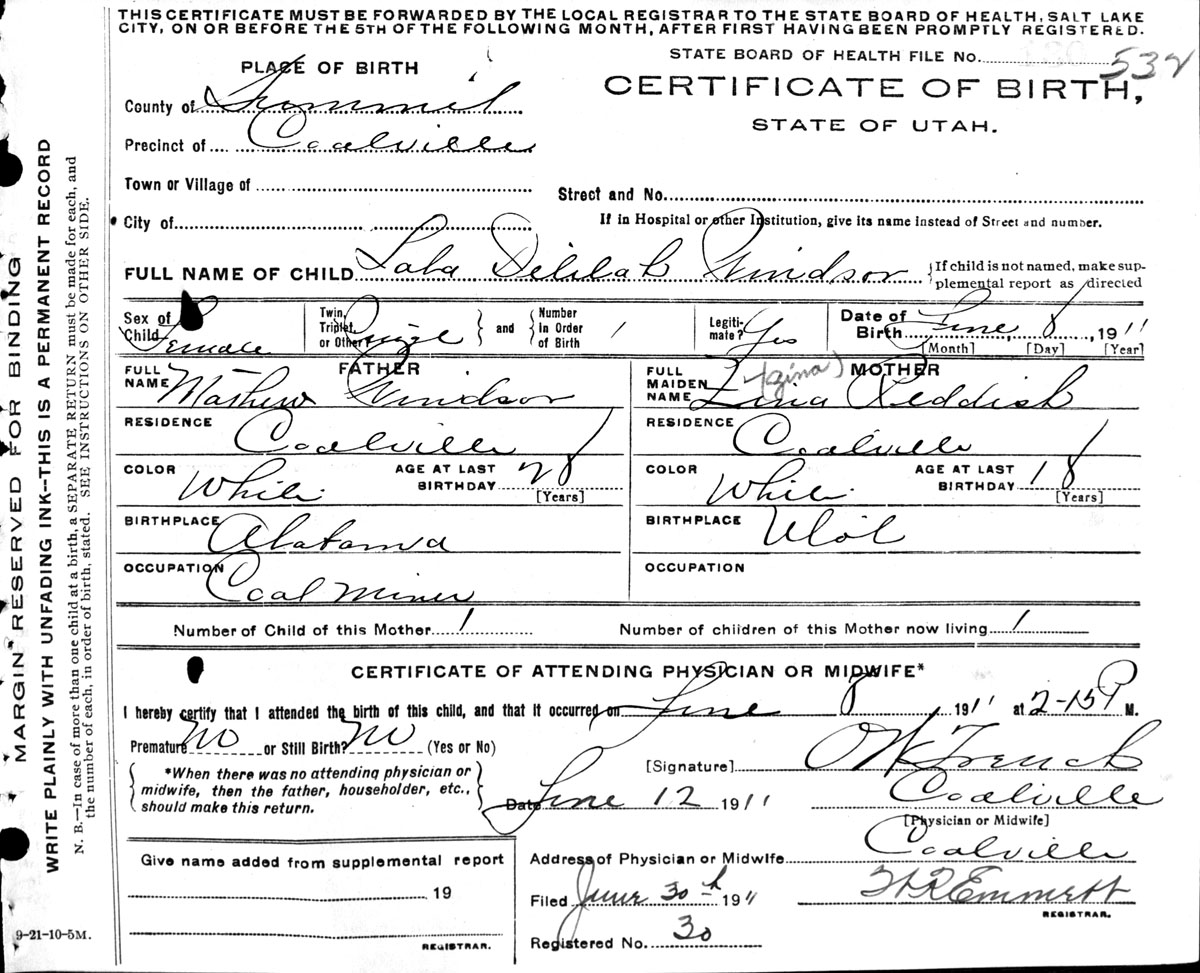 THIS CERTIFICATE MUST BE FORWARDED BY THE LOCAL REGISTRAR TO THE STATE BOARD OF HEALTH, SALT LAKE
CITY, ON OR BEFORE THE 5TH OF THE FOLLOWING MONTH, AFTER FIRST HAVING BEEN PROMPTLY REGISTERED.
STATE BOARD OF HEALTH FILE NO. 532
PLACE OF BIRTH
CERTIFICATE OF BIRTH,
STATE OF UTAH.
County of Summit
Precinct of Coalville
Town or Village of
Street and No.
City of
If in Hospital or other Institution, give its name instead of Street and number.
FULL NAME OF CHILD Lala Delilah Windsor {If child is not named, make sup-
plemental report as directed
Sex of Child Female
Twin, Triplet, or Other Single } and { Number In Order of Birth 1
Legiti-mate? Yes
Date of Birth June 8, 1911
[Month] [Day] [Year]
FATHER
FULL NAME Mathew Windsor
RESIDENCE Coalville
COLOR White AGE AT LAST BIRTHDAY 28
[Years]
BIRTHPLACE Alabama
OCCUPATION Coal Miner
MOTHER
(Zina)
FULL MAIDEN NAME Zina Reddish
RESIDENCE Coalville
COLOR White AGE AT LAST BIRTHDAY 18
[Years]
BIRTHPLACE Utah
OCCUPATION
Number of Child of this Mother 1 Number of children of this Mother now living 1
CERTIFICATE OF ATTENDING PHYSICIAN OR MIDWIFE*
I hereby certify that I attended the birth of this child, and that it occurred on June 8 1911 at 2-15 P M.
Premature No or Still Birth? No (Yes or No)
*When there was no attending physician or
midwife, then the father, householder, etc.,
should make this return.
[Signature] O W French
Date June 12 1911 Coalville
[Physician or Midwife]
Give name added from supplemental report
19
REGISTRAR.
Address of Physician or Midwife Coalville
Filed June 30th 1911 Emmett
REGISTRAR.
Registered No. 30
9-21-10-5M.
MARGIN RESERVED FOR BINDING
WRITE PLAINLY WITH UNFADING INK--THIS IS A PERMANENT RECORD
N. B.—In case of more than one child at a birth, a SEPARATE RETURN must be made for each, and
the number of each, in order of birth, stated. SEE INSTRUCTIONS ON OTHER SIDE.